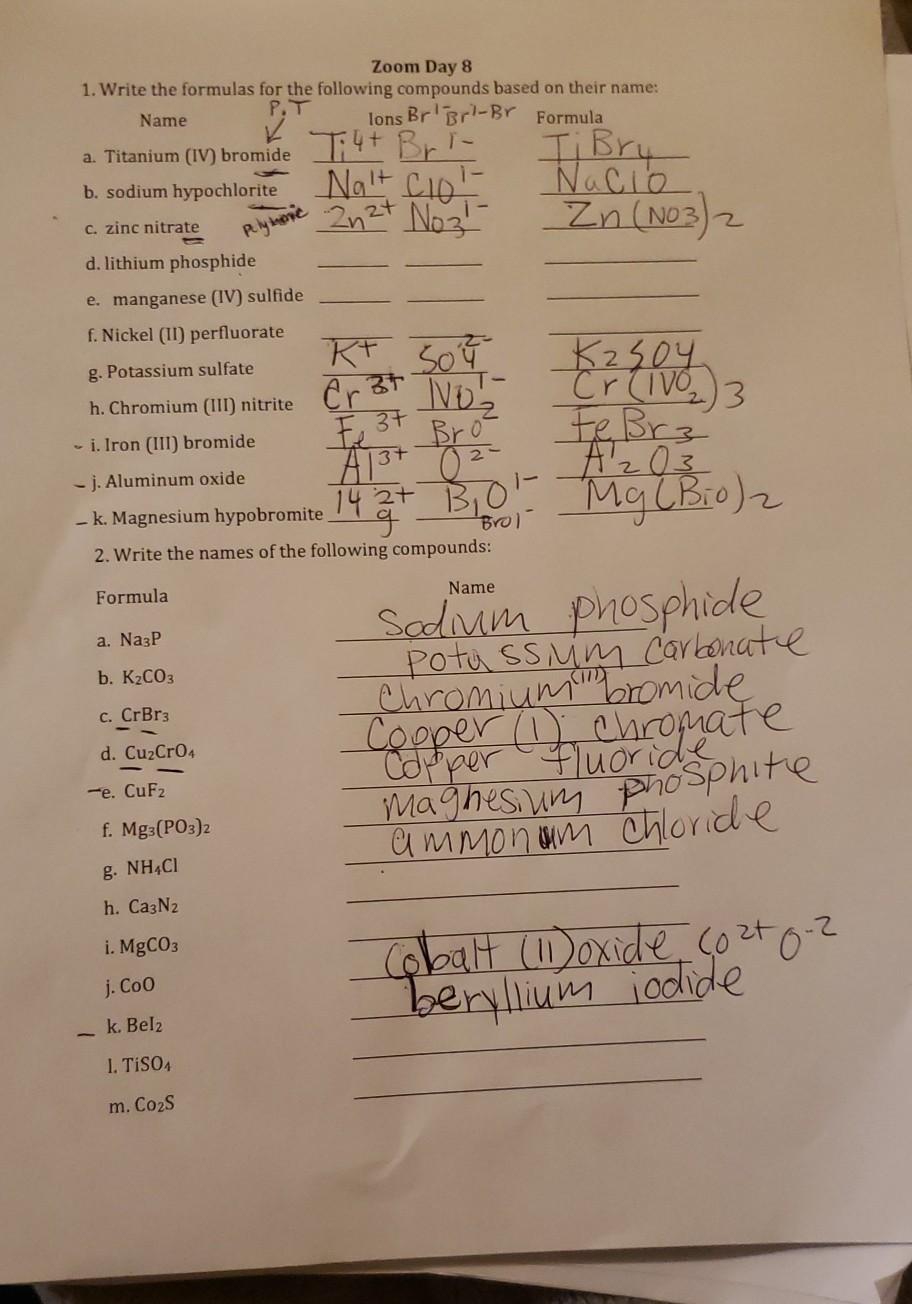 Zoom Day 8
1. Write the formulas for the following compounds based on their name:
P.T
Name Ions Br¹⁻ Br¹⁻Br Formula
a. Titanium (IV) bromide Ti⁴⁺ Br¹⁻ TiBr₄
b. sodium hypochlorite Na¹⁺ ClO¹⁻ NaClO
c. zinc nitrate Zn²⁺ NO₃¹⁻ Zn(NO₃)₂
d. lithium phosphide
e. manganese (IV) sulfide
f. Nickel (II) perfluorate
g. Potassium sulfate K⁺ SO₄²⁻ K₂SO₄
h. Chromium (III) nitrite Cr³⁺ NO₂¹⁻ Cr(NO₂)₃
- i. Iron (III) bromide Fe³⁺ BrO⁻ FeBr₃
- j. Aluminum oxide Al³⁺ O²⁻ Al₂O₃
- k. Magnesium hypobromite Mg²⁺ BrO¹⁻ Mg(BrO)₂
BrO¹⁻
2. Write the names of the following compounds:
Formula Name
a. Na₃P Sodium phosphide
b. K₂CO₃ potassium carbonate
c. CrBr₃ Chromium (III) bromide
d. Cu₂CrO₄ Copper (I) chromate
-e. CuF₂ Copper fluoride
f. Mg₃(PO₃)₂ magnesium phosphite
g. NH₄Cl ammonium chloride
h. Ca₃N₂
i. MgCO₃
j. CoO Cobalt (II) oxide Co²⁺ O⁻²
- k. BeI₂ beryllium iodide
l. TiSO₄
m. Co₂S